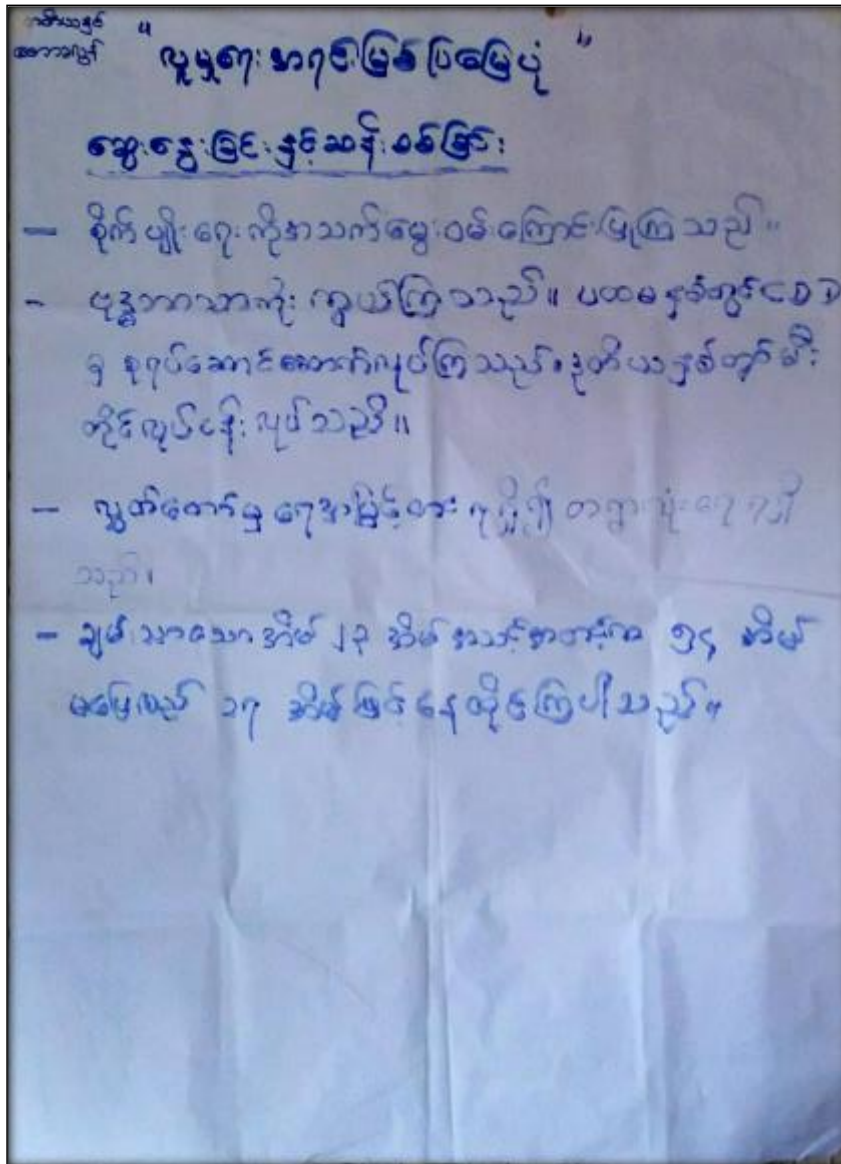 တတိယနှစ်
" လူမှုရေး အရင်းမြစ်ပြမြေပုံ "
ဆွေးနွေးခြင်းနှင့်ဆန်းစစ်ခြင်း
- စိုက်ပျိုးရေးကိုအသက်မွေးဝမ်းကြောင်းပြုကြသည်။
- ဗုဒ္ဓဘာသာကိုးကွယ်ကြသည်။ ပထမနှစ်တွင် CDD
မှ စုရပ်ဆောင်ဆောက်လုပ်ကြသည်။ ဒုတိယနှစ်တွင် မီး
တိုင်လုပ်ငန်းလုပ်သည်။
- လွှတ်တော်မှ ရေအမြင့်ထား ရရှိ၍ တရွာလုံးရေရရှိ
သည်။
- ချမ်းသာသောအိမ် ၂၃ အိမ် အသင့်အတင့်က ၅၄ အိမ်
မပြေလည် ၁၇ အိမ်ဖြင့်နေထိုင်ကြပါသည်။